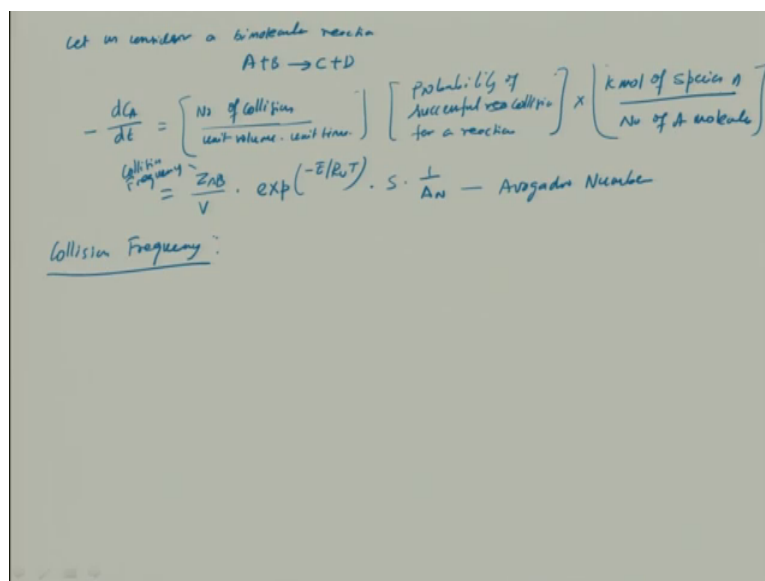 Let us consider a bimolecule reaction
A+B → C+D
- dCA/dt = [No of Collision / unit volume . unit time] [Probability of successful collision for a reaction] × [kmol of Species A / No of A molecule]
Collision Frequency
= ZAB/V . exp(-E/RuT) . S . 1/AN — Avogadro Number
Collision Frequency :